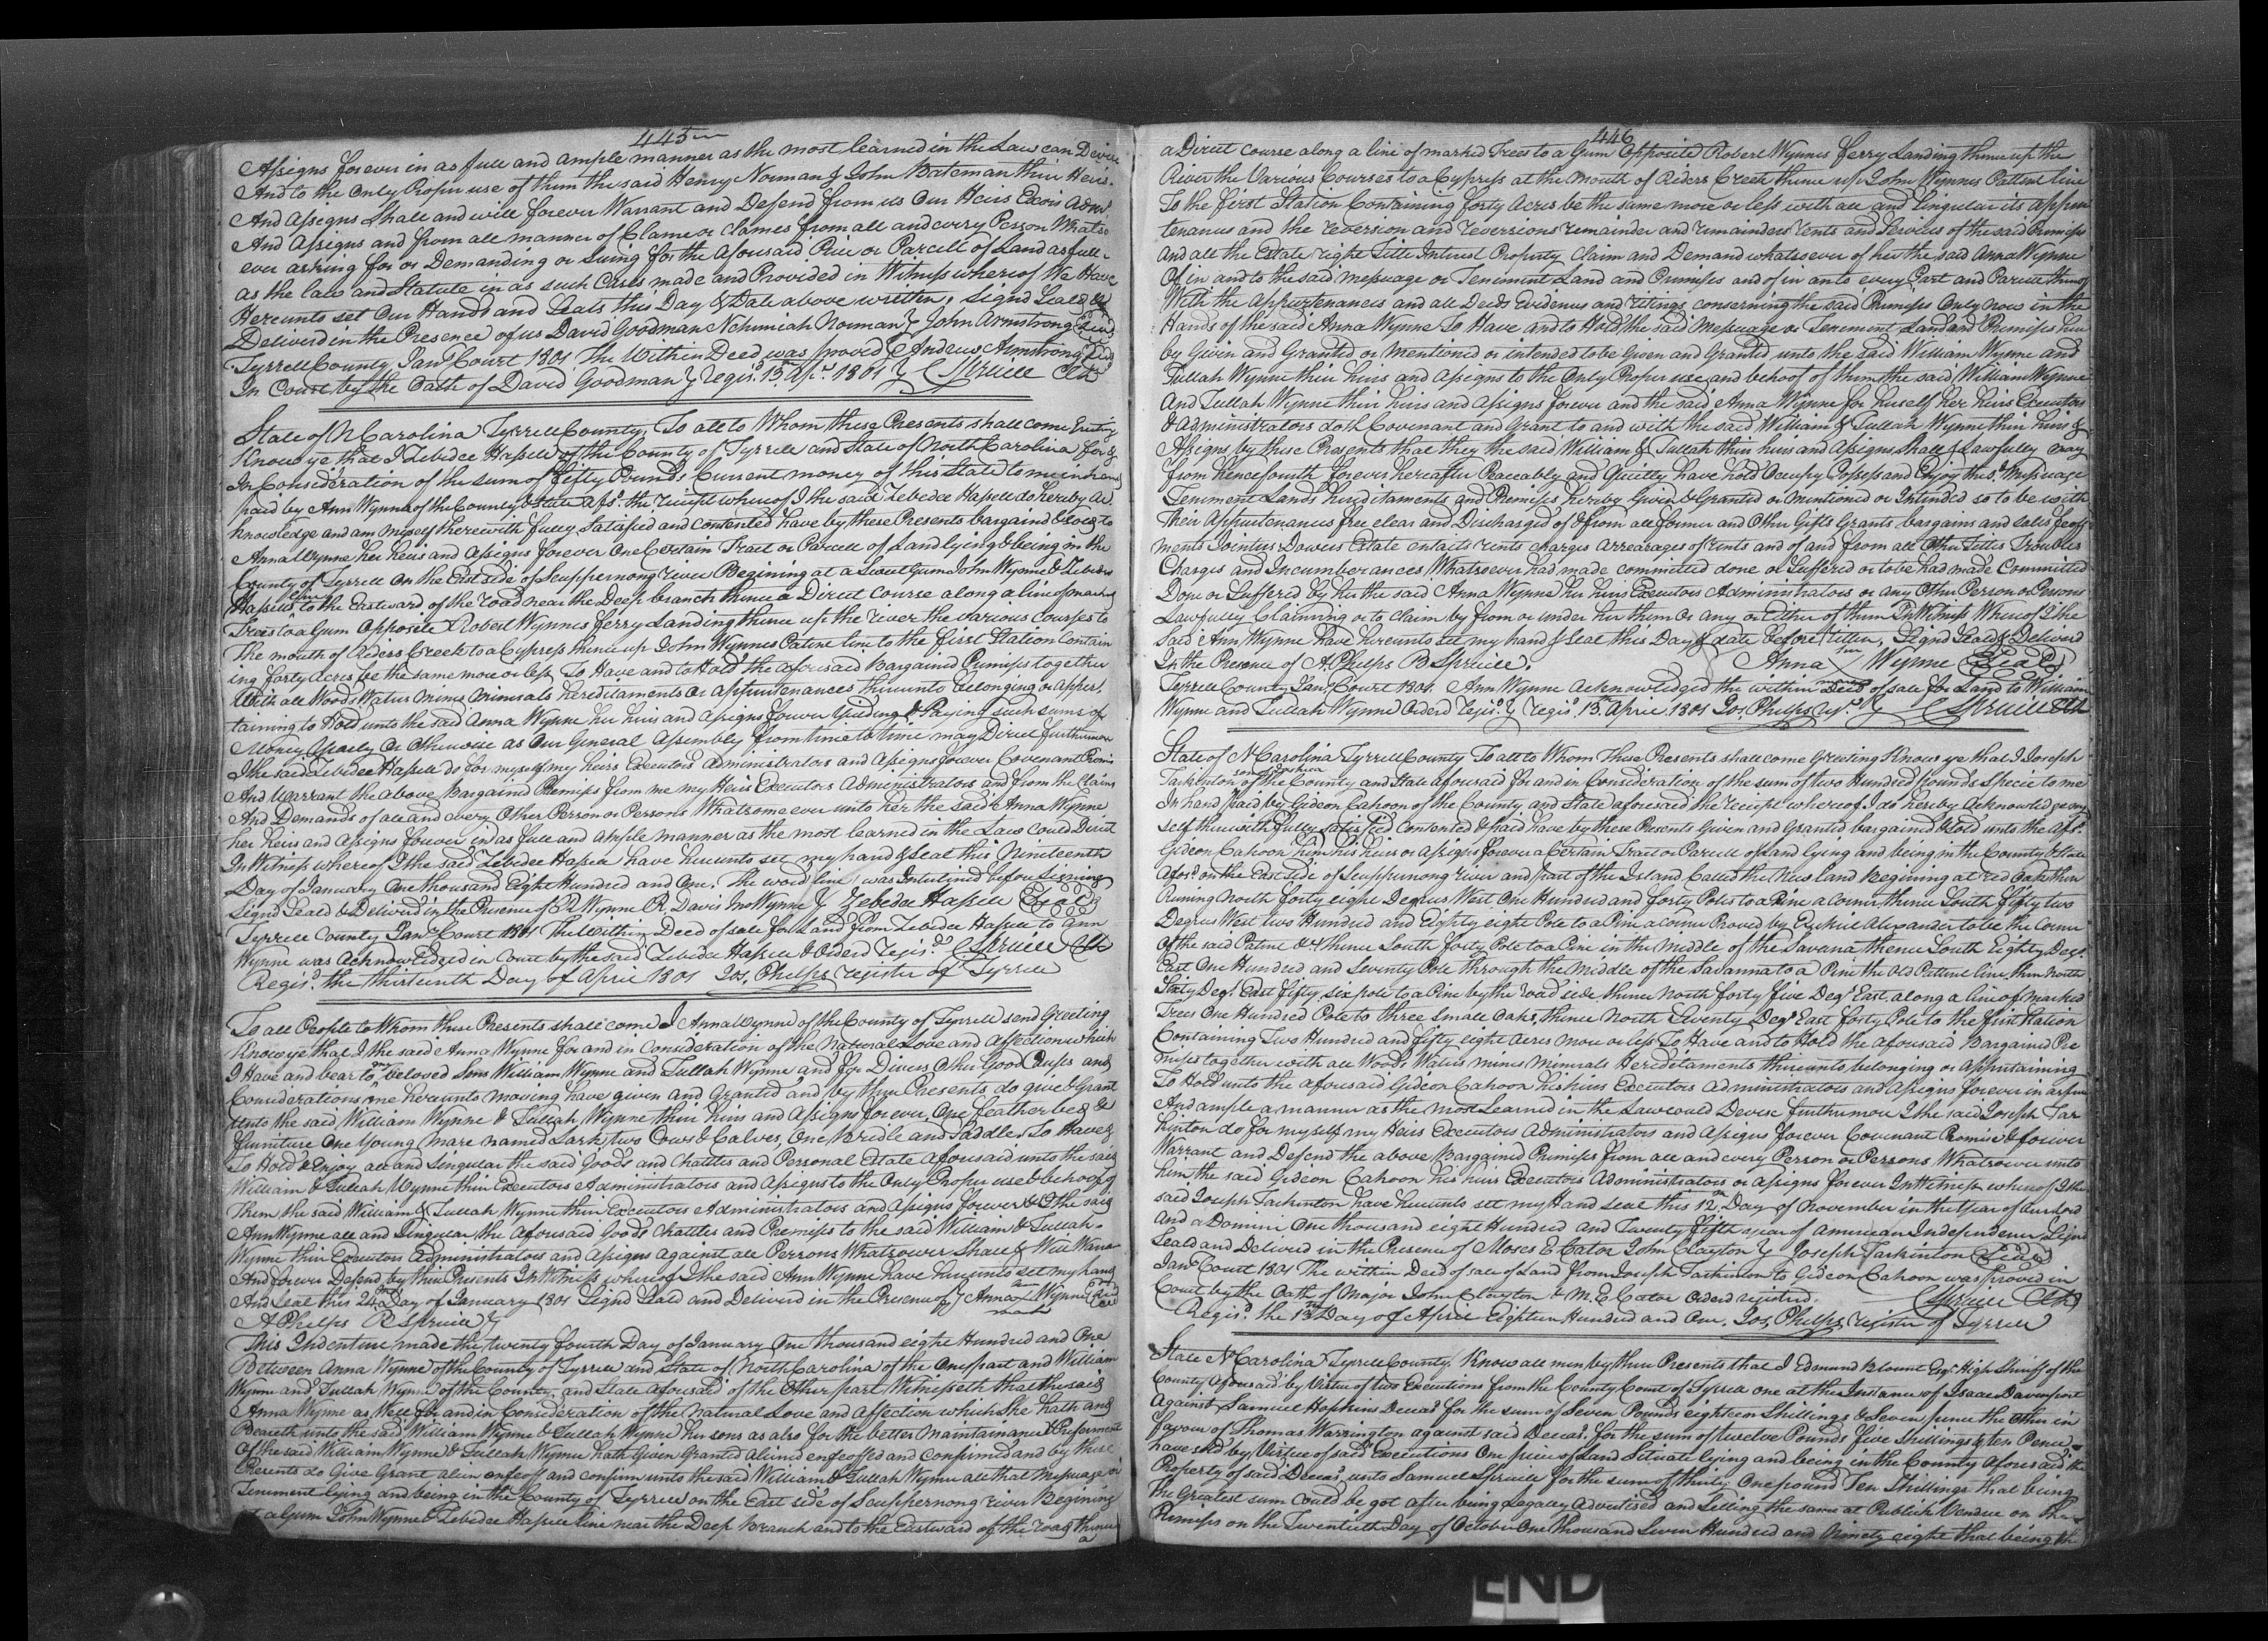 445
Assigns forever in as full and ample manner as the most learned in the Law can Devise
And to the Only Proper use of them the said Henry Norman & John Bateman their Heirs
And Assigns Shall and will forever Warrant and Defend from us Our Heirs Exors Admrs
And Assigns and from all manner of Clame or Clames from all and every Person Whatso
ever asking for or Demanding or Suing for the Aforesaid Piece or Parcell of Land as full
as the law and Statute in as such Cases made and Provided in Witness whereof We Have
Hereunto set Our Hands and Seals this Day & Date above written. Signd Seald &
Deliverd in the Presence of us David Goodman Nehemiah Norman } John Armstrong Seal
Tyrrell County Jany Court 1801 The Within Deed was proved } Andrew Armstrong Seal
In Court by the Oath of David Goodman } Regisd 13 Apl 1801 } C Spruill Clk
State of N Carolina Tyrrell County, To all to Whom these Presents shall come Greeting
Know ye that I Zebedee Hassell of the County of Tyrrell and State of North Carolina for &
In Consideration of the sum of fifty Pounds Current money of this State to me in hand
paid by Ann Wynne of the County & State Afsd the receipt whereof I the said Zebedee Hassell do hereby Ac
knowledge and am myself therewith fully Satisfied and contented have by these Presents bargaind & Sold to
Anna Wynne her heirs and assigns forever One Certain Tract or Parcell of Land lying & being in the
County of Tyrrell On the East side of Scuppernong river Begining at a Sweet Gum John Wynne & Zebedee
Hassells line to the Eastward of the road near the Deep branch thence a Direct Course along a line of marked
Trees to a Gum Opposite Robert Wynnes ferry Landing thence up the river the various courses to
The mouth of Riders Creek to a Cypress thence up John Wynnes Patine line to the first Station Contain
ing forty Acres be the same more or less To Have and to Hold the aforesaid Bargained Premises together
With all Woods Waters Mines Minerals hereditaments or appurtenances thereunto belonging or apper
taining to Hold unto the said Anna Wynne her heirs and assigns forever Yielding & Paying such sums of
Money Yearly Or Otherwise as Our General Assembly from time to time may Direct furthermore
I the said Zebedee Hassell do for myself my heirs Executors administrators and assigns forever Covenant Promis
And Warrant the above Bargained Premises from me my Heirs Executors Administrators and from the Claims
And Demands of all and every Other Person or Persons Whatsomeever unto her the said Anna Wynne
her heirs and Assigns forever in as full and ample manner as the most learned in the Law could Direct
In Witness whereof I the said Zebedee Hassell have hereunto set my hand & Seal this Nineteenth
Day of January One thousand Eight Hundred and One. The word line was Interlined before Signing
Signd Seald & Deliverd in the Presence of R Wynne R. Davis Jno Wynne } Zebedee Hassell Seal
Tyrrell County Jany Court 1801 The Within Deed of sale for Land from Zebedee Hassell to Ann
Wynne was Acknowledged in Court by the said Zebedee Hassell & Orderd regisd C Spruill Clk
Regisd the thirteenth Day of April 1801 Jos. Phelps register of Tyrrell
To all People to Whom these Presents shall come I Anna Wynne of the County of Tyrrell send Greeting
Know ye that I the said Anna Wynne for and in Consideration of the Natural Love and Affection which
I Have and bear to my beloved Sons William Wynne and Tullah Wynne and for Divers Other Good Causes and
Considerations me hereunto moving have given and Granted and by these Presents do give & Grant
Unto the said William Wynne & Tullah Wynne their heirs and Assigns forever, One feather bed &
furniture One Young Mare named Lark, two Cows & Calves, One Bridle and Saddle. To Have &
To Hold & Enjoy all and Singular the said Goods and Chattles and Personal Estate aforesaid unto the said
William & Tullah Wynne their Executors Administrators and Assigns to the Only Proper use & behoof of
Them the said William & Tullah Wynne their Executors Administrators and Assigns forever & I the said
Ann Wynne all and Singular the aforesaid Goods Chattles and Premises to the said William & Tullah
Wynne their Executors Administrators and Assigns against all Persons Whatsoever Shall & Will Warra
And forever Defend by these Presents In Witness whereof I the said Ann Wynne have hereunto set my hand
And Seal this 24th Day of January 1801 Signd Seald and Deliverd in the Presence of } Anna her mark Wynne Seal
A Phelps B Spruill }
This Indenture made the twenty fourth Day of January One thousand eight Hundred and One
Between Anna Wynne of the County of Tyrrell and State of North Carolina of the One part and William
Wynne and Tullah Wynne of the County and State aforesaid of the Other part Witnesseth that the said
Anna Wynne as Well for and in Consideration of the Natural Love and Affection which She hath and
Beareth unto the said William Wynne & Tullah Wynne her sons as also for the better Maintainance & Preferment
Of the said William Wynne & Tullah Wynne hath Given Granted aliened enfeoffed and Confirmed and by these
Presents do Give Grant alien enfeoff and confirm unto the said William & Tullah Wynne all that Messuage or
Teniment lying and being in the County of Tyrrell on the East side of Scuppernong river Begining
at a Gum John Wynne & Zebedee Hassell line near the Deep Branch and to the Eastward of the road thence
a
446
a Direct Course along a line of marked Trees to a Gum Opposite Robert Wynnes ferry Landing thence up the
River the Various Courses to a Cypress at the Mouth of Riders Creek thence up John Wynnes Pattent line
To the first Station Containing forty Acres be the same more or less with all and Singular its appur
tenances and the reversion and reversions remainder and remainders rents and Services of the said Premises
And all the Estate right Title Interest Property Claim and Demand whatsoever of her the said Anna Wynne
Of in and to the said messuage or Teniment Land and Premises and of in an to every Part and Parcell thereof
With the Appurtenances and all Deeds Evidences and ritings concerning the said Premises Only now in the
Hands of the said Anna Wynne To Have and to Hold the said Messuage or Teniment Land and Premises here
by Given and Granted or mentioned or intended to be Given and Granted unto the said William Wynne and
Tullah Wynne their heirs and Assigns to the Only Proper use and behoof of them the said William Wynne
And Tullah Wynne their heirs and Assigns forever and the said Anna Wynne for herself her heirs Executors
& Administrators doth Covenant and Grant to and with the said William & Tullah Wynne their heirs &
Assigns by these Presents that they the said William & Tullah their heirs and Assigns Shall & Lawfully may
from henceforth forever hereafter Peaceably and Quietly have hold Occupy Possess and Enjoy the sd Messuage
Teniment Lands Hereditaments and Premises hereby Given & Granted or Mentioned or Intended so to be with
Their Appurtenances free clear and Discharged of & from all former and Other Gifts Grants bargains and sales feoff
ments Jointures Dowers Estate entails rents charges arrearages of rents and of and from all Other Titles Troubles
Charges and Incumberances Whatsoever had made committed done or Suffered or to be had made Committed
Done or Suffered by her the said Anna Wynne her heirs Executors Administrators or any Other Person or Persons
Lawfully Claiming or to claim by from or under her them Or any or Either of them In Witness Whereof I the
said Ann Wynne have hereunto set my hand & Seal this Day & date before ritten. Signd Seald & Deliverd
In the Presence of A Phelps B Spruill. Anna her mark Wynne Seal
Tyrrell County Jany Court 1801 Ann Wynne Acknowledged the within Deed of sale for Land to William
Wynne and Tullah Wynne Orderd regisd } regisd 13th April 1801 Jos. Phelps regr } C Spruill Clk
State of N Carolina Tyrrell County To all to Whom These Presents shall come Greeting Know ye that I Joseph
Tarkinton son of Joshua of the County and State aforesaid for and in Consideration of the sum of two Hundred pounds Specie to me
In hand paid by Gideon Cahoon of the County and State aforesaid the receipt whereof I do hereby Acknowledge my
self therewith fully satisfied Contented & paid have by these Presents Given and Granted bargained & Sold unto the Afsd
Gideon Cahoon him his heirs or assigns forever a Certain Tract or Parcell of Land lying and being in the County & State
Aforsd on the East side of Scuppernong river and part of the Island Called the New land Begining at red Oak then
Runing North forty eight Degrees West One Hundred and forty Poles to a Pine a corner thence South fifty two
Degrees West two Hundred and Eighty eight Pole to a Pine a corner Proved by Ezekiel Alexander to be the Corner
Of the said Patent &c thence South forty Pole to a Pine in the Middle of the Savana thence South Eighty Degs
East One Hundred and Seventy Pole through the Middle of the Savanna to a Pine the Old Pattent line then North
Sixty Degs East fifty six pole to a Pine by the road side thence North forty five Degs East along a line of marked
Trees One Hundred Pole to three Small Oaks, thence North Twenty Degs East forty Pole to the first station
Containing Two Hundred and fifty eight Acres more or less To Have and to Hold the aforesaid Bargained Pre
mises together with all Woods Waters mines Minerals Hereditaments thereunto belonging or Appertaining
To Hold unto the aforesaid Gideon Cahoon his heirs Executors Administrators and Assigns forever in as full
And ample a manner as the Most Learned in the Law could Devise furthermore I the said Joseph Tar
kinton do for myself my Heirs Executors Administrators and Assigns forever Covenant Promise & forever
Warrant and Defend the above Bargained Premises from all and every Person or Persons Whatsoever unto
him the said Gideon Cahoon his heirs Executors Administrators or Assigns forever In Witness whereof I the
said Joseph Tarkinton have hereunto set my Hand Seal this 12th Day of November in the Year of our Lord
And a Domini One thousand eight Hundred and Twenty fifth year of American Independence Signd
Seald and Deliverd in the Presence of Moses E Cator John Clayton } Joseph Tarkinton Seal
Jany Court 1801 The within Deed of sale of Land from Joseph Tarkinton to Gideon Cahoon was proved in
Court by the Oath of Major John Clayton & M. E Cator Orderd registerd. C Spruill Clk
Regisd the 13th Day of April Eighteen Hundred and One. Jos. Phelps register of Tyrrell
State N Carolina Tyrrell County. Know all men by these Presents that I Edmund Blount Esqr High Sheriff of the
County aforesaid by Virtue of two Executions from the County Court of Tyrrell one at the Instance of Isaac Davenport
Against Samuel Hopkins Decead for the sum of Seven Pounds eighteen Shillings & Seven pence the Other in
favour of Thomas Warrington against said Decead. for the sum of twelve Pounds five Shillings & ten Pence
have sold by Virtue of said Executions One piece of Land Situate lying and being in the County Aforesaid the
Property of said Decead unto Samuel Spruill for the sum of thirty One pound Ten Shillings that being
the Greatest sum could be got after being Legally Advertised and Selling the same at Publick Vendue on the
Premises on the Twentieth Day of October One thousand Seven Hundred and Ninety eight that being th
END